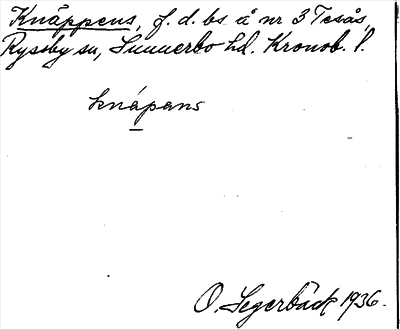 Knäppens, f. d. bs å nr 3 Tesås,
Ryssby sn, Sunnerbo hd. Kronob. l.
knápens
O. Segerbäck 1936.